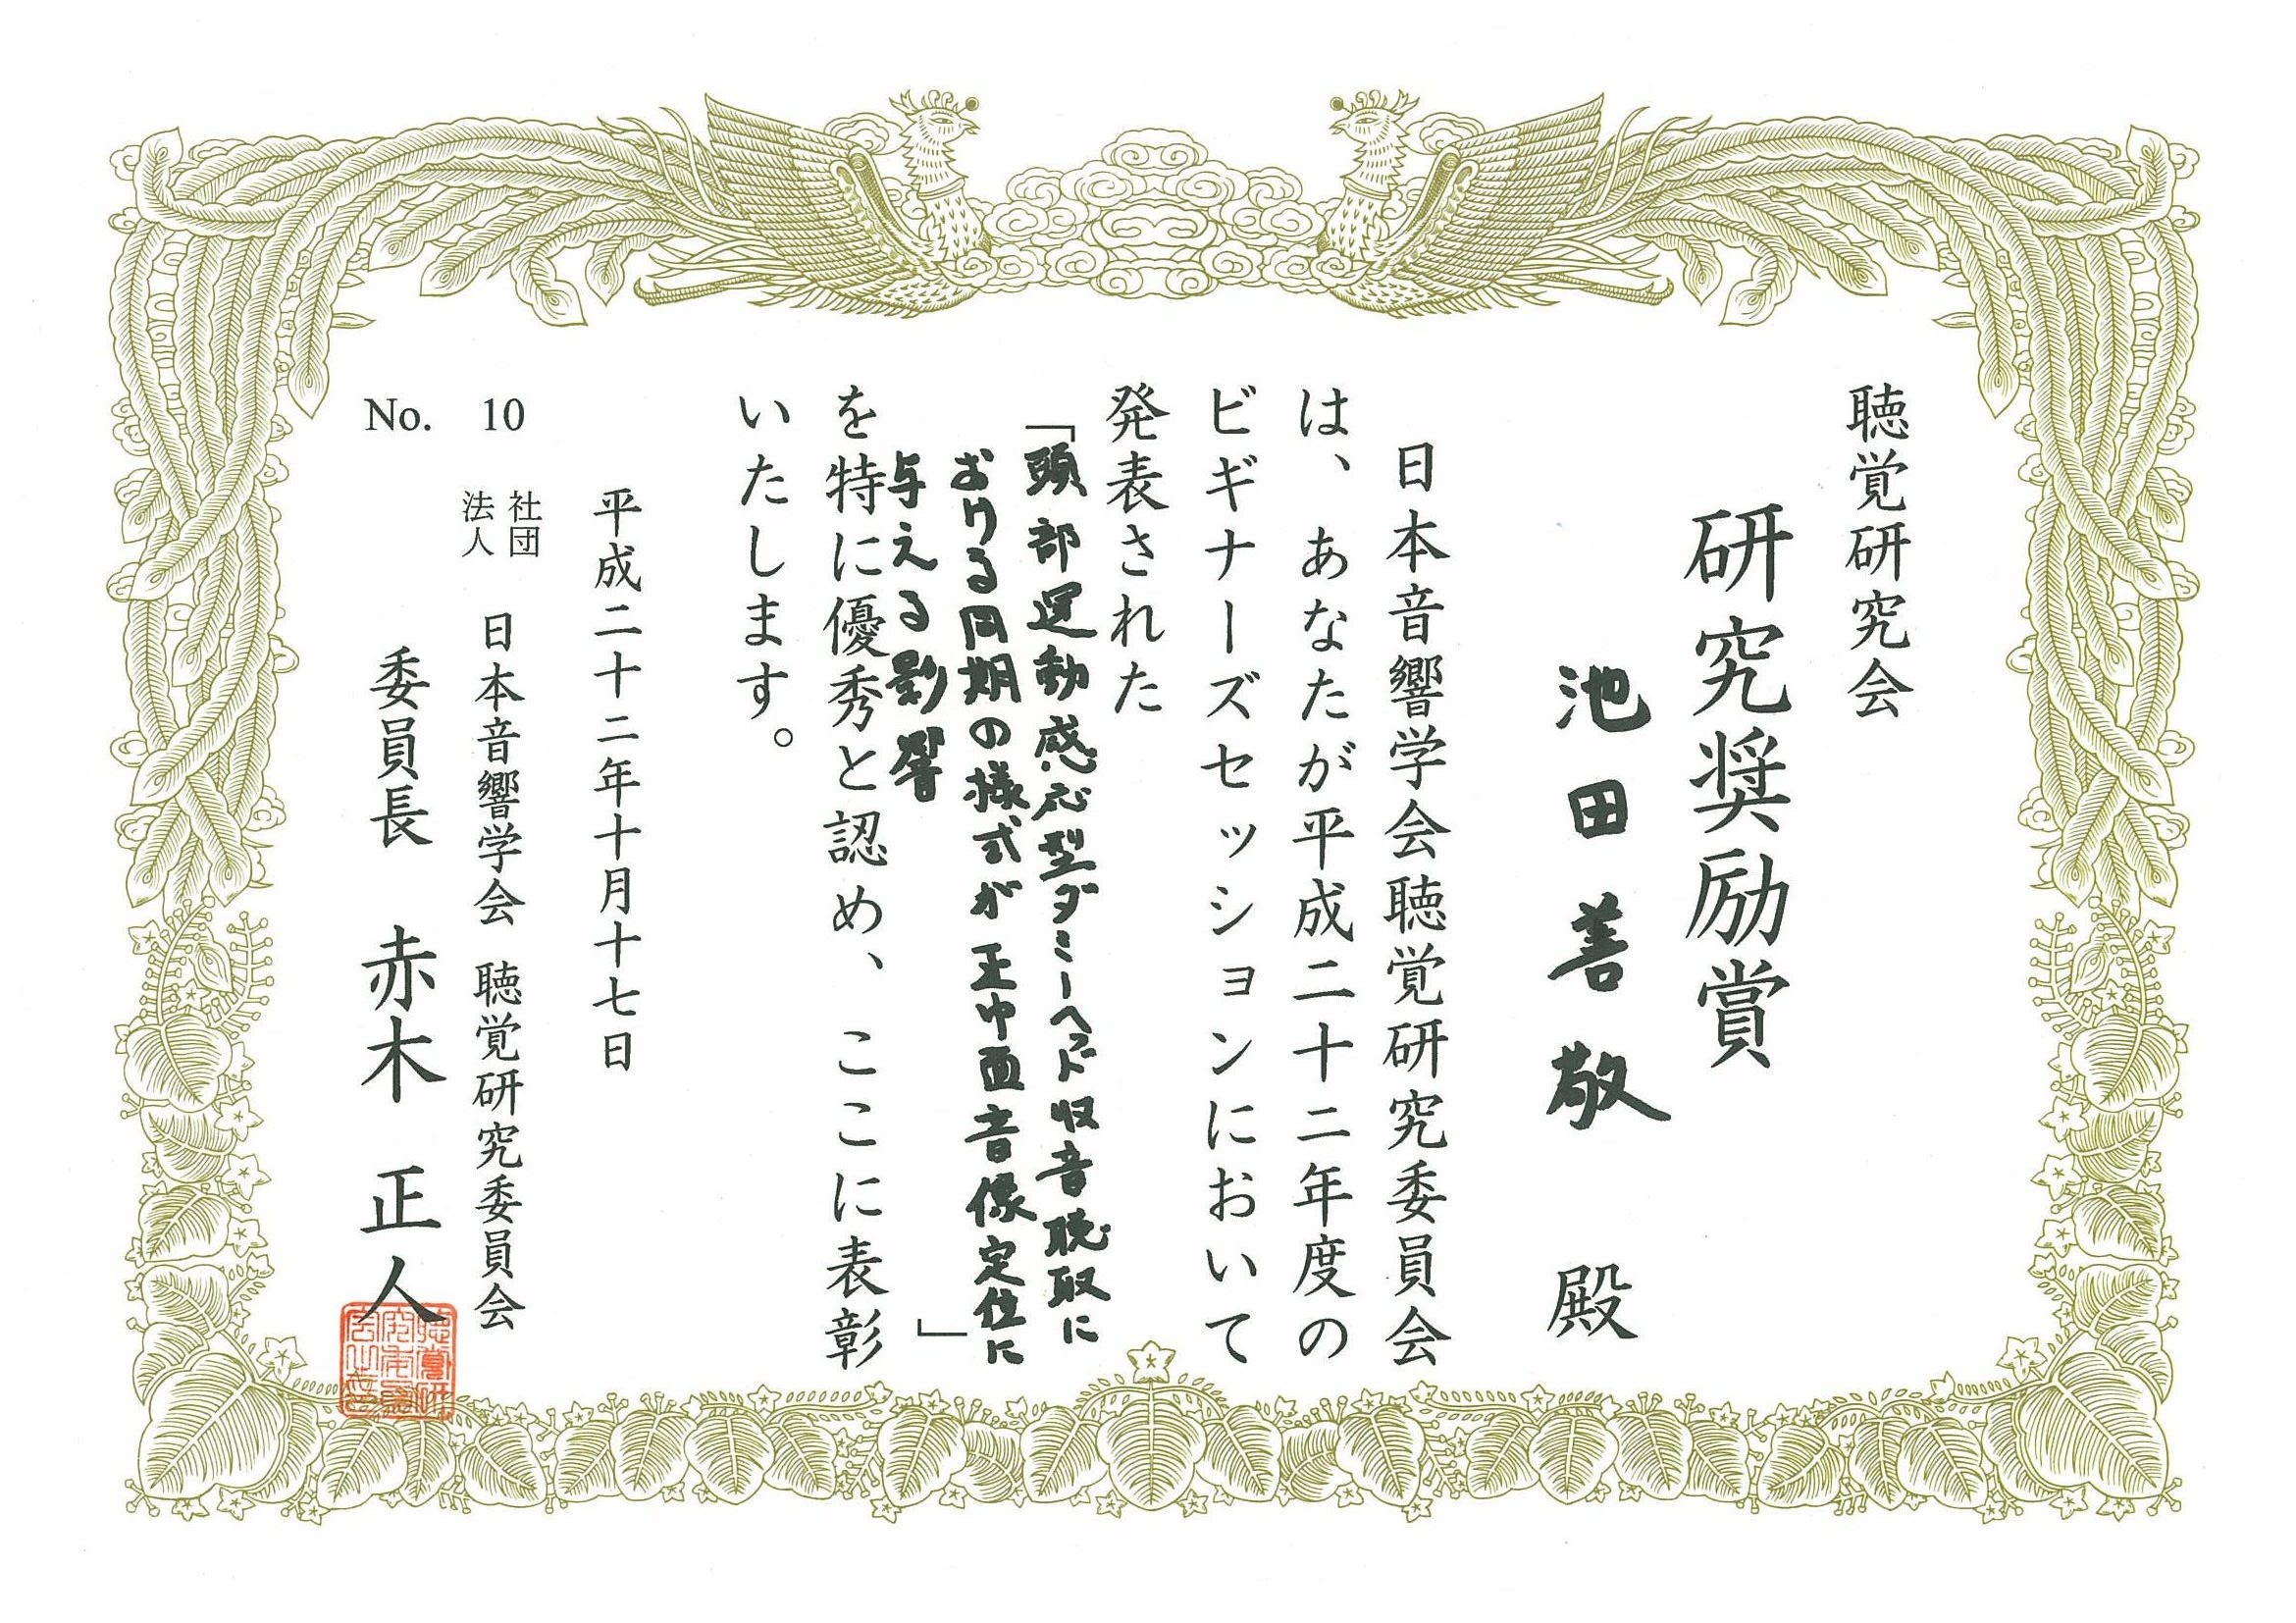 聴覚研究会
研究奨励賞
池田善敬 殿
日本音響学会聴覚研究委員会
は、あなたが平成二十二年度の
ビギナーズセッションにおいて
発表された
「頭部運動感応型ダミーヘッド収音聴取に
おける同期の様式が正中面音像定位に
与える影響」
を特に優秀と認め、ここに表彰
いたします。
平成二十二年十月十七日
No. 10
社団法人 日本音響学会 聴覚研究委員会
委員長 赤木正人